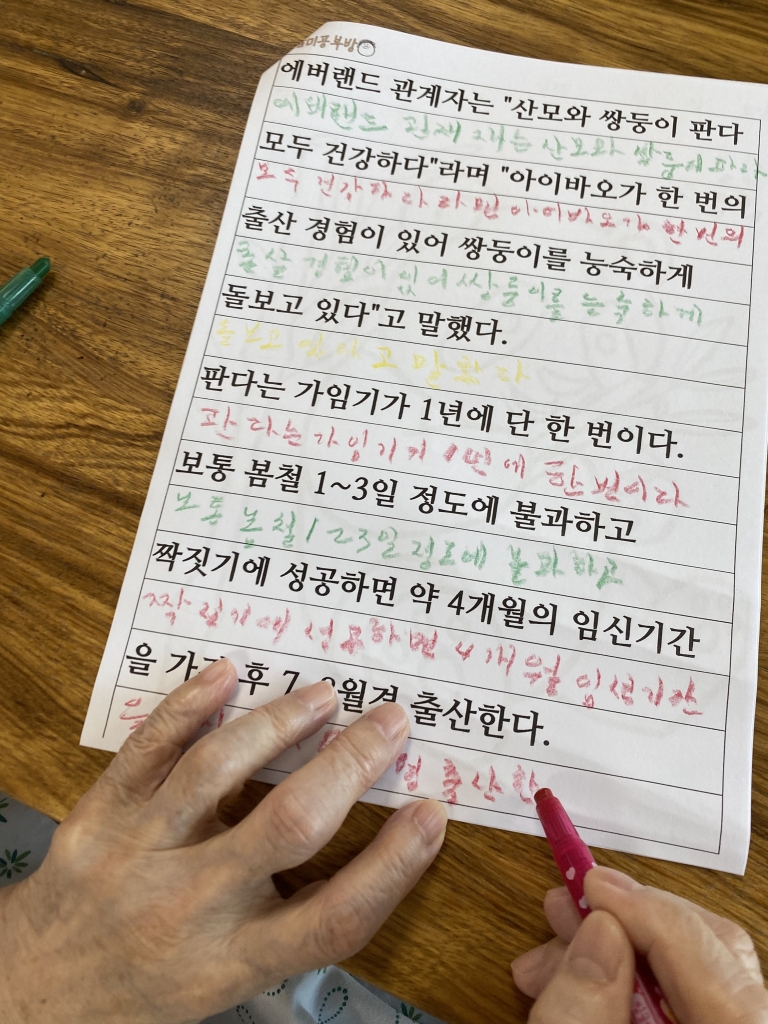 에버랜드 관계자는 "산모와 쌍둥이 판다
에버랜드 관재 자는 산모와 쌍둥이
모두 건강하다"라며 "아이바오가 한 번의
모두 건강하다 라면 아이바오가 한번의
출산 경험이 있어 쌍둥이를 능숙하게
출살 경험이 있어 쌍둥이를 능숙하게
돌보고 있다"고 말했다.
돌보고 있다고 말했다
판다는 가임기가 1년에 단 한 번이다.
판다는 가임기가 1년에 한번이다
보통 봄철 1~3일 정도에 불과하고
보통 봄철 1~3일 정도에 불과하고
짝짓기에 성공하면 약 4개월의 임신기간
짝짓기에 성공하면 4개월 임신기간
을 후 7 월경 출산한다.
을 출산한